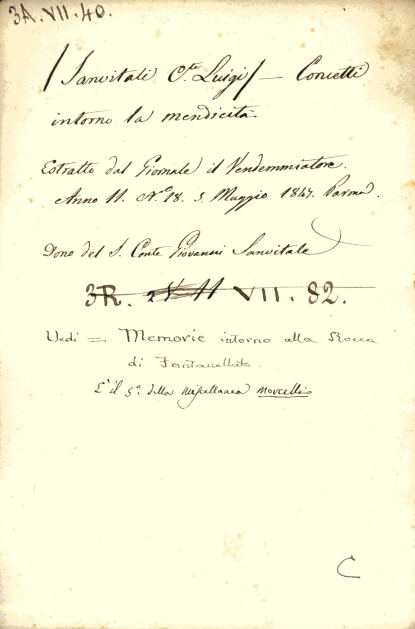 3A.VII.40.
/Sanvitali C.te Luigi/ — Concetti
intorno la mendicità.
Estratto dal Giornale il Vendemmiatore.
Anno 11. No. 18. 3. Maggio 1847. Parma.
Dono del S. Conte Giovanni Sanvitale
3R. VII. 82.
Vedi = Memorie intorno alla Rocca
di Fontanellato.
È il 5°. della Miscellanea Morcelli
C